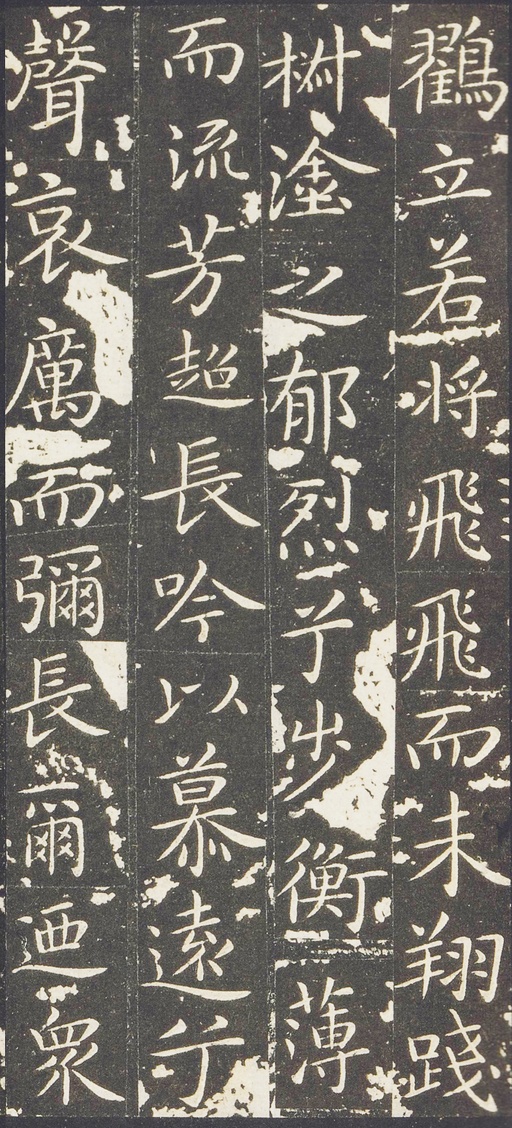 鸖立若将飛飛而未翔踐
椒塗之郁烈兮步衡薄
而流芳超長吟以慕遠兮
聲哀厲而彌長爾迺衆